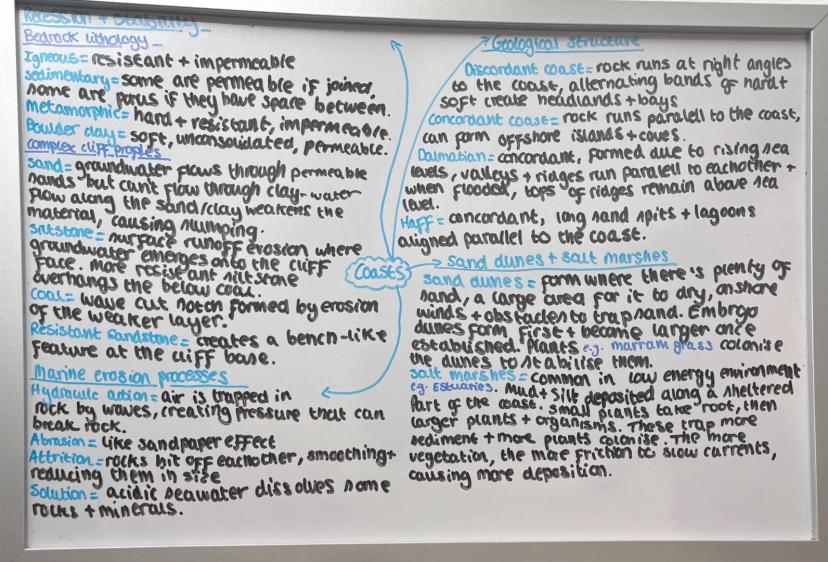 Recession + Stability -
Bedrock lithology -
Igneous = resistant + impermeable
sedimentary = some are permeable if joined,
some are porus if they have space between.
metamorphic = hard + resistant, impermeable.
Boulder clay = soft, unconsolidated, permeable.
complex cliff profiles
sand = groundwater flows through permeable
sands but can't flow through clay - water
flow along the sand/clay weakens the
material, causing slumping.
siltstone = surface runoff erosion where
groundwater emerges onto the cliff
face. More resistant siltstone
overhangs the below coal.
Coal = wave cut notch formed by erosion
of the weaker layer.
Resistant sandstone = creates a bench-like
feature at the cliff base.
Marine erosion processes
Hydraulic action = air is trapped in
rock by waves, creating pressure that can
break rock.
Abrasion = like sandpaper effect
Attrition = rocks hit off eachother, smoothing +
reducing them in size
Solution = acidic seawater dissolves some
rocks + minerals.
Coasts
Geological structure
Discordant coast = rock runs at right angles
to the coast, alternating bands of hard +
soft create headlands + bays
Concordant coast = rock runs paralell to the coast,
can form offshore islands + coves.
Dalmatian = concordant, formed due to rising sea
levels, valleys + ridges run parallel to eachother +
when flooded, tops of ridges remain above sea
level.
Haff = concordant, long sand spits + lagoons
aligned parallel to the coast.
sand dunes + salt marshes
sand dunes = form where there's plenty of
sand, a large area for it to dry, onshore
winds + obstacles to trap sand. Embryo
dunes form first + become larger once
established. Plants e.g. marram grass colonise
the dunes to stabilise them.
salt marshes = common in low energy environment
eg. Estuaries. Mud + silt deposited along a sheltered
part of the coast. small plants take root, then
larger plants + organisms. These trap more
sediment + more plants colonise. The more
vegetation, the more friction to slow currents,
causing more deposition.